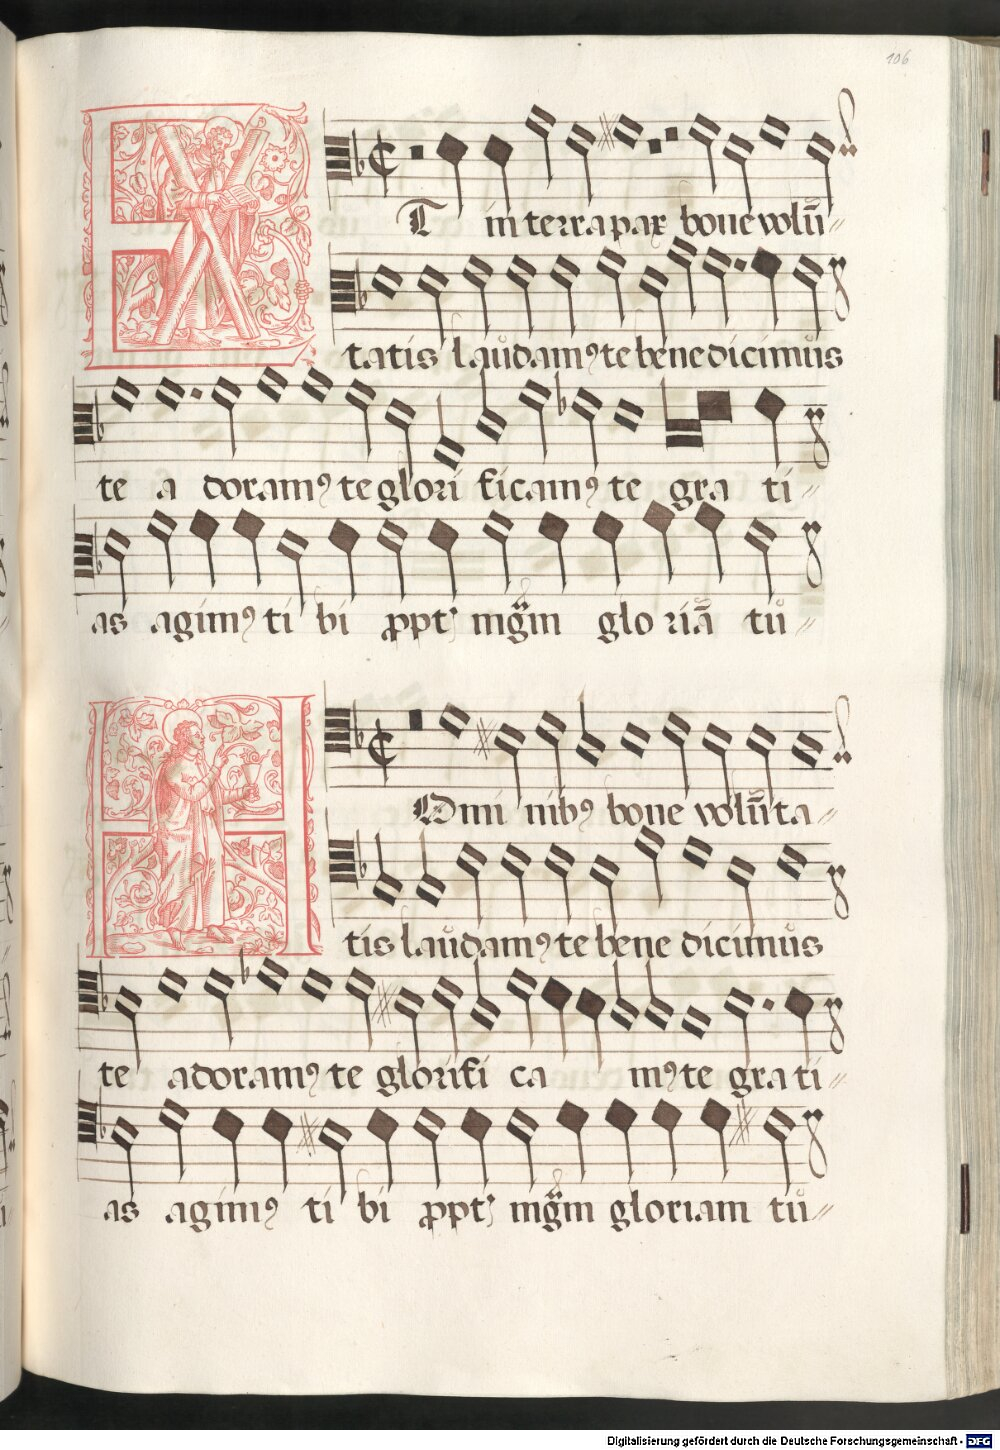 106
ET in terra pax bone volū
tatis laudamꝰ te benedicimus
te adoramꝰ te glorificamꝰ te grati
as agimꝰ tibi ꝓpt mg̃m gloriā tu
HOminibꝰ bone volūta
tis laudamꝰ te benedicimus
te adoramꝰ te glorificamꝰ te grati
as agimꝰ tibi ꝓpt mg̃m gloriam tu
Digitalisierung gefördert durch die Deutsche Forschungsgemeinschaft - DFG